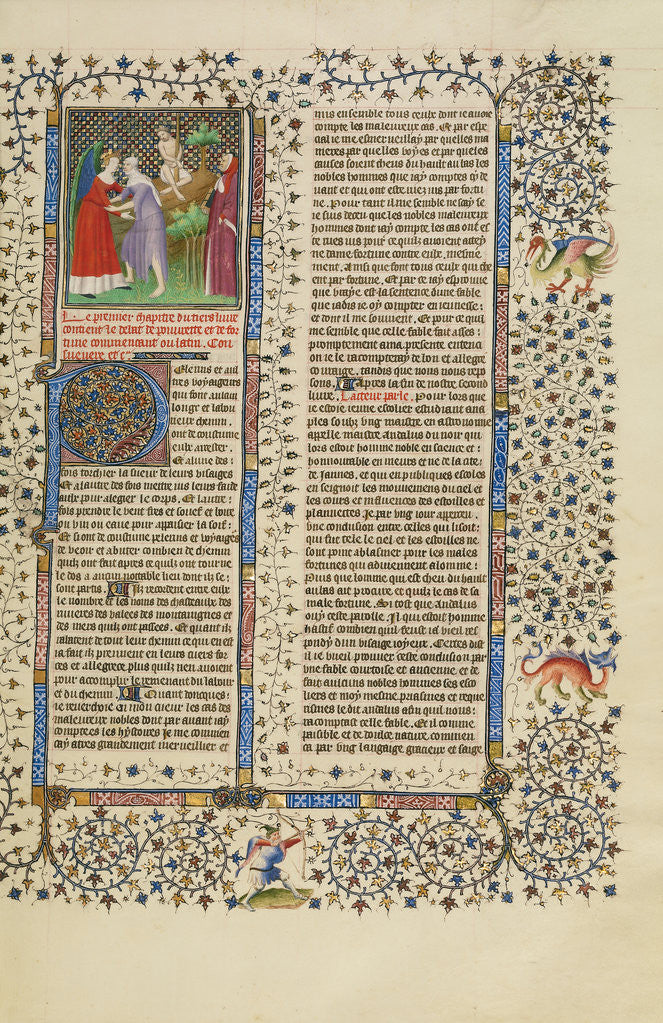 Le premier chapitre du tiers livre
contient le debat de pouurete et de for
tune commencant ou latin. Con
sueuere etc.
Elerins et aul
tres voyageurs
qui font aucun
longe et labou
reux chemin.
ont de coustume
eulx arrester.
Et aucunes des
fois torcher la sueur de leurs visaiges
Et aautre des fois mettre ius leurs faide
aulx pour alegier le corps. Et lautre
fois prendre le vent fres et souef et boire
ou vin ou eaue pour appaisier la soif.
Et si ont de coustume pelerins et voyaiges
de veoir et abuter combien de chemin
quilz ont fait apres ce quilz ont tourne
le dos a aucun notable lieu dont ilz se
sont partis. Ilz recordent entre eulx
le nombre et les noms des chasteaulx des
riuieres des valees des montaignes et
des mers quilz ont passees. Et quant ilz
rabatent de tout leur chemin ce quen est
ia fait ilz preuuent en leurs ciers for
ces et allegrece plus quilz nen auoient
pour acomplir le remenant du labour
et du chemin. Quant doncques
ie reuerchoie en mon cueur les cas des
maleureux nobles dont par auant iay
comptees les hystoires Je me commen
cay a tres grandement merueillier et
mis ensemble tous ceulx dont ie auoie
compte les maleureux cas. Et par espe
cial ie me esmerueillay par quelles ma
nieres par quelles voyes et par quelles
causes soient cheus du hault au bas les
nobles hommes que iay comptes cy de
uant et qui ont este miz ius par fortu
ne. Pour tant il me semble ne scay se
ie suis deceu que les nobles maleureux
hommes dont iay compte les cas ont es
te tues ius pour ce quilz auoient attey
ne dame fortune contre eulx mesme
ment. Ainsi que font tous ceulx qui che
ent par fortune. Et par ce iay esprouue
que vraye est la sentence dune fable
que iadis ie oy compter en ieunesse
et dont il me souuient. Et pour ce quil
me semble que celle fable fait asses
promptement a ma presente entencí
on ie le racompteray de bon et allegre
couraige. tandis que nous nous repo
sons. Apres la fin de nostre second
liure. Lacteur parle. Pour lors que
ie estoie ieune escolier estudiant a na
ples soubz vng maistre en astronomie
appelle maistre andalus du noir qui
lors estoit homme noble en science et
honnourable en meurs et ne de la cite
de Jannes, et qui en publiques escoles
enseignoit les mouuemens du ciel et
les cours et influences des estoilles et
planectes. Je par vng iour apperceu
vne conclusion entre celles qui lisoit
qui fut tele le ciel et les estoilles ne
sont point a blasmer pour les males
fortunes qui aduiennent a lomme
Puis que lomme qui est cheu du hault
au bas ait procure et quis le cas de sa
male fortune. Si tost que Andalus
ouy ceste parolle. Il qui estoit homme
hastif combien quil feust ia vieil res
pondy dun visaige ioyeux. Certes dist
il ie vueil prouuer ceste conclusion par
vne fable courtoise et ancienne. et de
fait aucuns nobles hommes ses esco
liers et moy mesme priasmes et reque
rismes le dit andalus afin quil nous
racomptast celle fable. Et il comme
paisible et de doulce nature. commen
ca par vng langaige gracieux et saige